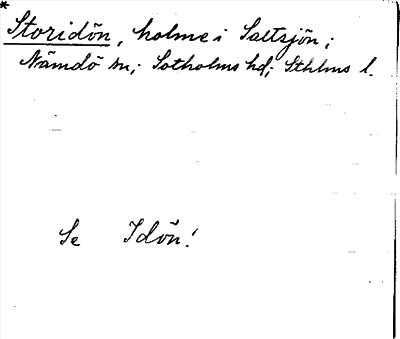 *
Storidön, holme i Saltsjön;
Nämdö sn; Sotholms hd; Sthlms l.
Se Idön!